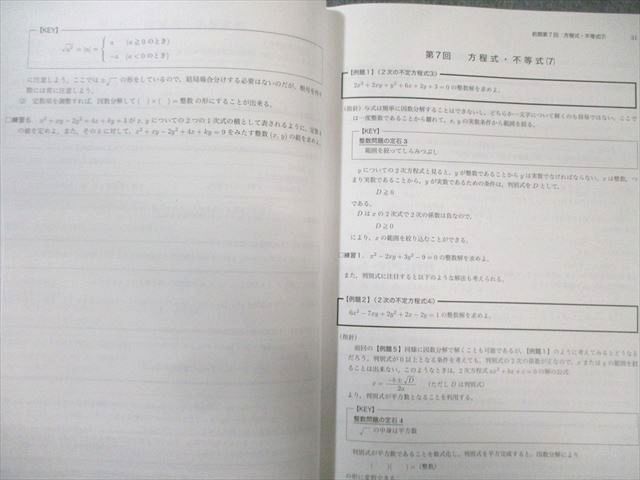 【KEY】
√a² = |a| = { a (a ≧ 0 のとき)
-a (a < 0 のとき)
に注意しよう。ここでは ±√ の形をしているので、結局場合分けする必要はないのだが、
際には常に注意しよう。
(2) 定数項を調整すれば、因数分解して ( )( ) = 整数 の形にすることが出来る。
□練習6. x² + xy - 2y² + 4x + ky + 3 が x, y についての2つの1次式の積として表されるように、定数 k
の値を定めよ。また、その k に対して、x² + xy - 2y² + 4x + ky = 0 をみたす整数 (x, y) の値を求めよ。
前期第7回:方程式・不等式⑦ 31
第7回 方程式・不等式⑺
【例題1】(2次の不定方程式③)
2x² + 2xy + y² + 6x + 2y + 3 = 0 の整数解を求めよ。
(指針) 与式は簡単に因数分解することはできないし、どちらか一文字について解くのも容易ではない。ここで
は一度整数であることから離れて、x, y の実数条件から範囲を絞る。
【KEY】
整数問題の定石3
範囲を絞ってしらみつぶし
y についての2次方程式と見ると、y が整数であることから y は実数でなければならない。x は整数、つ
まり実数であることから、y が実数であるための条件は、判別式を D として、
D ≧ 0
である。
D は x の2次式で2次の係数は負なので、
D ≧ 0
により、x の範囲を絞り込むことができる。
□練習1. x² - 2xy + 3y² - 9 = 0 の整数解を求めよ。
また、判別式に注目すると以下のような解法も考えられる。
【例題2】(2次の不定方程式④)
6x² - 7xy + 2y² + 2x - 2y = 1 の整数解を求めよ。
(指針)
前回の【例題5】同様に因数分解で解くことも可能であるが、【例題1】のように考えてみるとどうなる
だろう。判別式が0以上となる条件を考えても、判別式の2次の係数が正なので、x または y の範囲を絞
ることは出来ない。このようなときは、2次方程式 ax² + bx + c = 0 の解の公式
x = (-b ± √D) / 2a (ただし D は判別式)
より、判別式が平方数となることを利用する。
【KEY】
整数問題の定石4
√ の中身は平方数
判別式が平方数であることを数式化し、判別式を平方完成すると、因数分解により
( )( ) = (整数)
の形に変形できる。